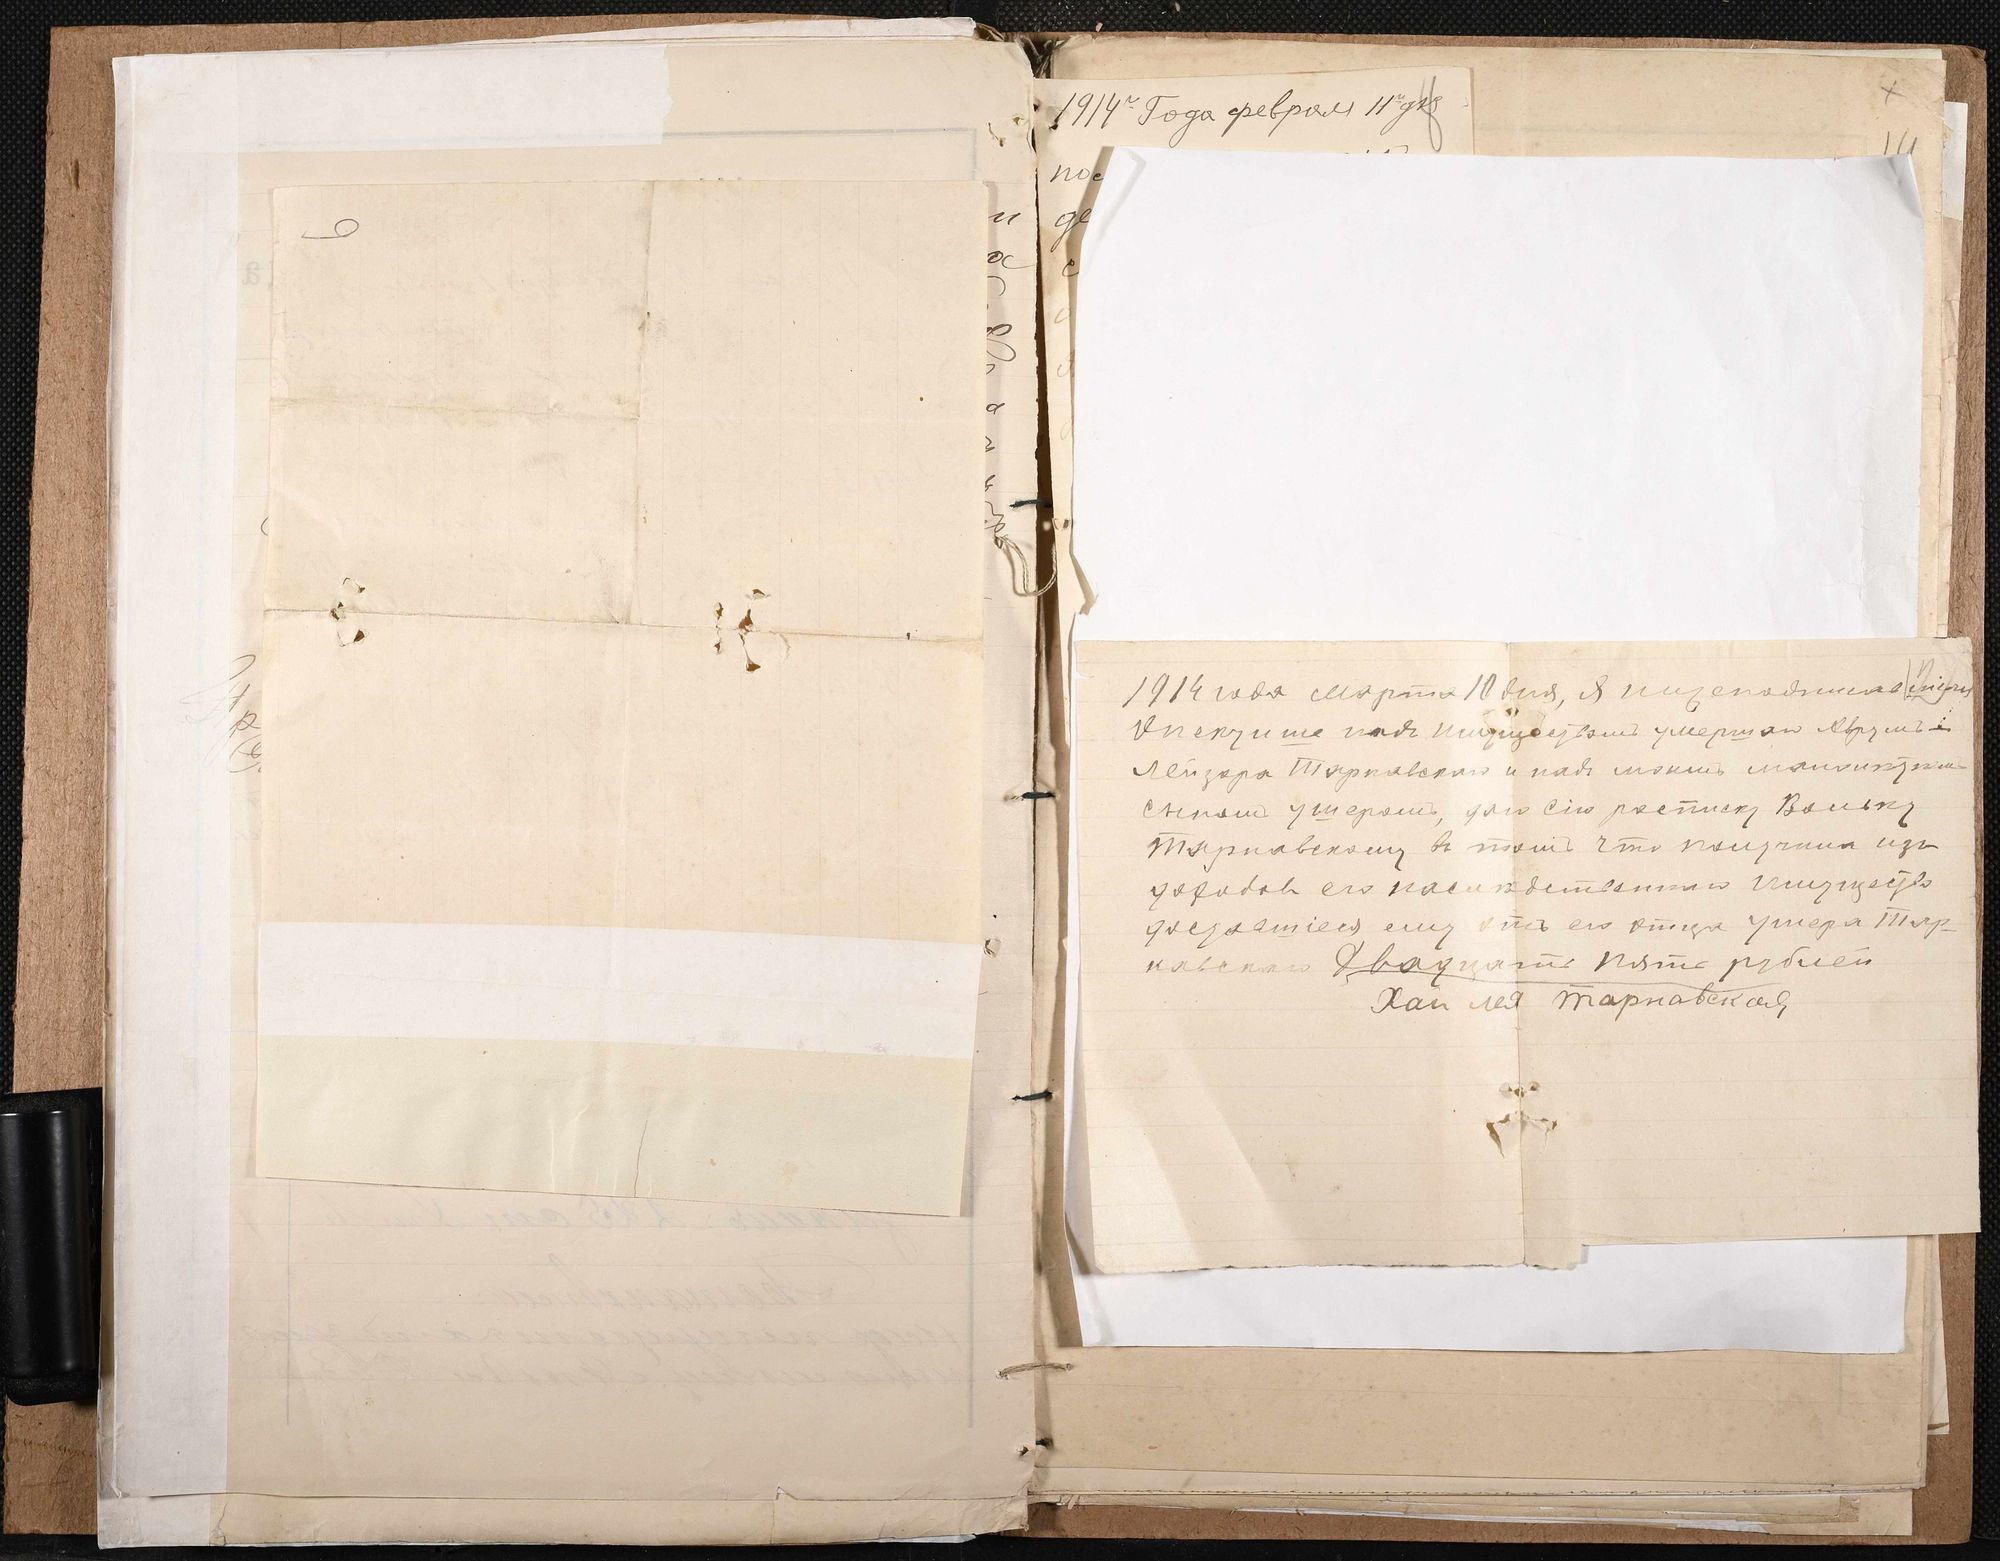 1914г Года февраля 11го дня
пос
де
с
1914 года Марта 10 дня, я нижеподписав
Опекунше надъ имуществомъ умершаго Аврумъ-
Лейзора Тарнавскаго и надъ моимъ малолѣтнимъ
сыномъ Ушеромъ, даю сію росписку Вольку
Тарнавскому въ томъ что получила изъ
доходовъ его наслѣдственнаго имущество
доставшіеся ему отъ его отца Ушера Тар-
навскаго Двадцать пять рублей
Хаи лея Тарнавская